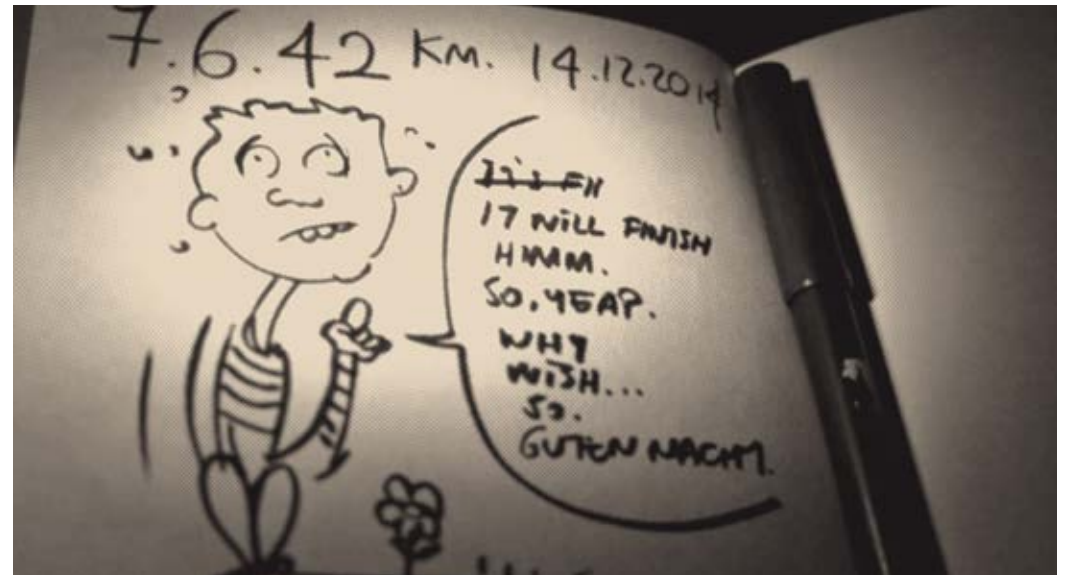 7.6.42 KM. 14.12.2014
It's FN
IT WILL FINISH
HMM.
SO, YEAP.
WHY
WISH...
SO.
GUTEN NACHT.